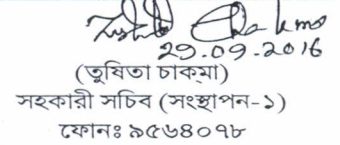 29.09.2016
(তুষিতা চাকমা)
সহকারী সচিব (সংস্থাপন-১)
ফোনঃ ৯৫৬৪০৭৮